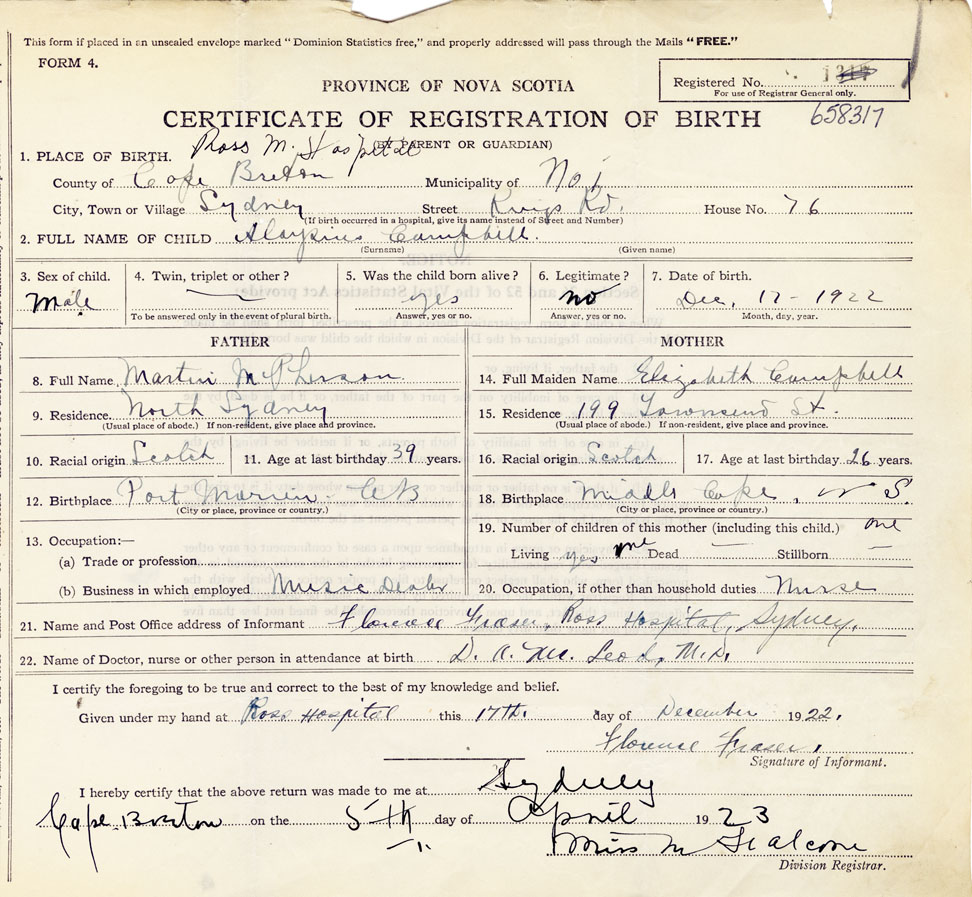 This form if placed in an unsealed envelope marked "Dominion Statistics free," and properly addressed will pass through the Mails "FREE."
FORM 4.
Registered No.
For use of Registrar General only.
PROVINCE OF NOVA SCOTIA
CERTIFICATE OF REGISTRATION OF BIRTH 658317
(BY PARENT OR GUARDIAN)
1. PLACE OF BIRTH. Ross M. Hospital
County of Cape Breton Municipality of No 1
City, Town or Village Sydney Street Kings Rd. House No. 76
(If birth occurred in a hospital, give its name instead of Street and Number)
2. FULL NAME OF CHILD Aloysius Campbell.
(Surname) (Given name)
3. Sex of child. 4. Twin, triplet or other? 5. Was the child born alive? 6. Legitimate? 7. Date of birth.
Male — yes no Dec. 17 - 1922
To be answered only in the event of plural birth. Answer, yes or no. Answer, yes or no. Month, day, year.
FATHER MOTHER
8. Full Name Martin McPherson 14. Full Maiden Name Elizabeth Campbell
9. Residence North Sydney 15. Residence 199 Townsend St.
(Usual place of abode.) If non-resident, give place and province. (Usual place of abode.) If non-resident, give place and province.
10. Racial origin Scotch 11. Age at last birthday 39 years. 16. Racial origin Scotch 17. Age at last birthday 26 years.
12. Birthplace Port Morien - CB 18. Birthplace Middle Cape, N S.
(City or place, province or country.) (City or place, province or country.)
13. Occupation:— 19. Number of children of this mother (including this child.) one
(a) Trade or profession Living yes, one Dead — Stillborn —
(b) Business in which employed Music dealer 20. Occupation, if other than household duties Nurse
21. Name and Post Office address of Informant Florence Fraser, Ross Hospital, Sydney.
22. Name of Doctor, nurse or other person in attendance at birth D. A. McLeod, M.D.
I certify the foregoing to be true and correct to the best of my knowledge and belief.
Given under my hand at Ross Hospital this 17th. day of December 1922.
Florence Fraser.
Signature of Informant.
I hereby certify that the above return was made to me at Sydney
Cape Breton on the 5th day of April 1923
Miss M
Division Registrar.